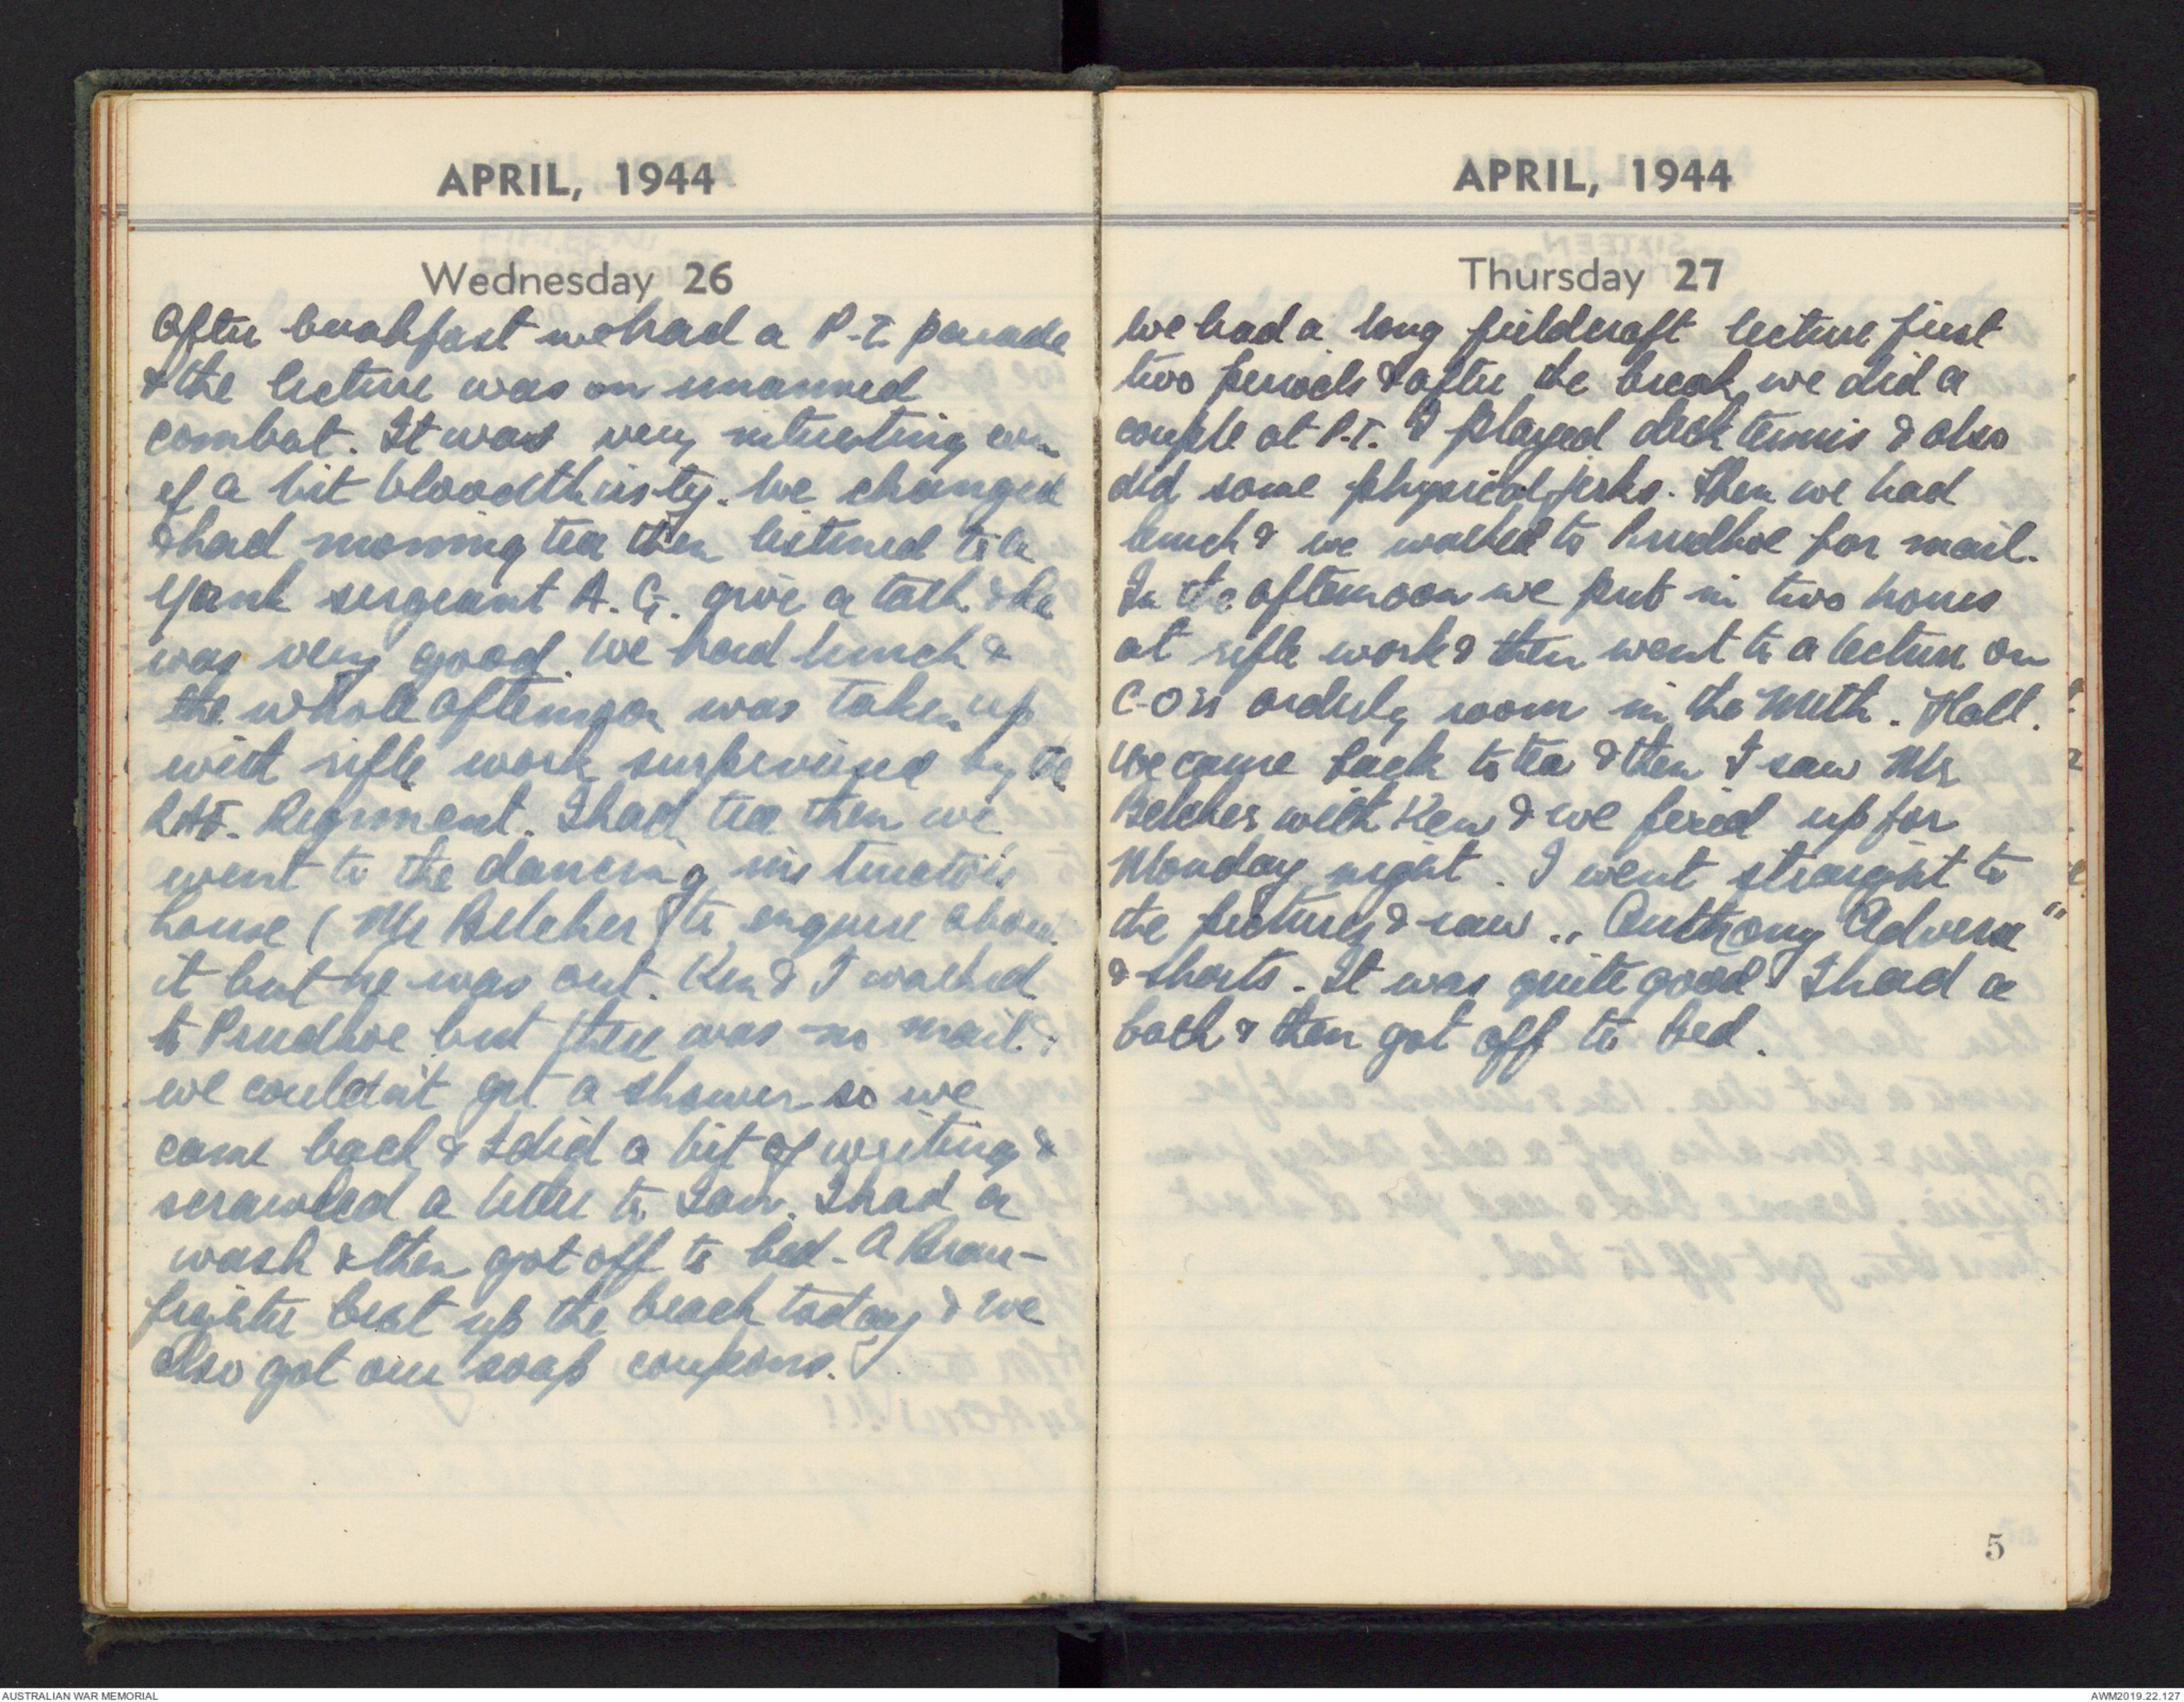 APRIL, 1944
Wednesday 26
After breakfast we had a P.T. parade
& the lecture was on unarmed
combat. It was very interesting even
if a bit bloodthirsty. We changed
& had morning tea then listened to a
Yank sergeant A.G. give a talk & he
was very good. We had lunch &
the whole afternoon was taken up
with rifle work supervised by the
RAF. Regiment. I had tea then we
went to the dancing instructor's
house (Mr Belcher) to enquire about
it but he was out. Ken & I walked
to Prudhoe but there was no mail.
we couldn't get a shower so we
came back & I did a bit of writing &
scrawled a letter to . I had a
wash & then got off to bed. A Beau-
fighter beat up the beach today & we
also got our soap coupons.
APRIL, 1944
Thursday 27
We had a long fieldcraft lecture first
two periods & after the break we did a
couple at P.T. I played deck tennis & also
did some physical jerks. Then we had
lunch & we walked to Prudhoe for mail.
In the afternoon we put in two hours
at rifle work & then went to a lecture on
C-O's orderly room in the Meth. Hall.
We came back to tea & then I saw Mr
Belcher with Ken & we fixed up for
Monday night. I went straight to
the pictures & saw "Anthony Adverse"
& shorts. It was quite good. I had a
bath & then got off to bed.
5
AUSTRALIAN WAR MEMORIAL
AWM2019.22.127